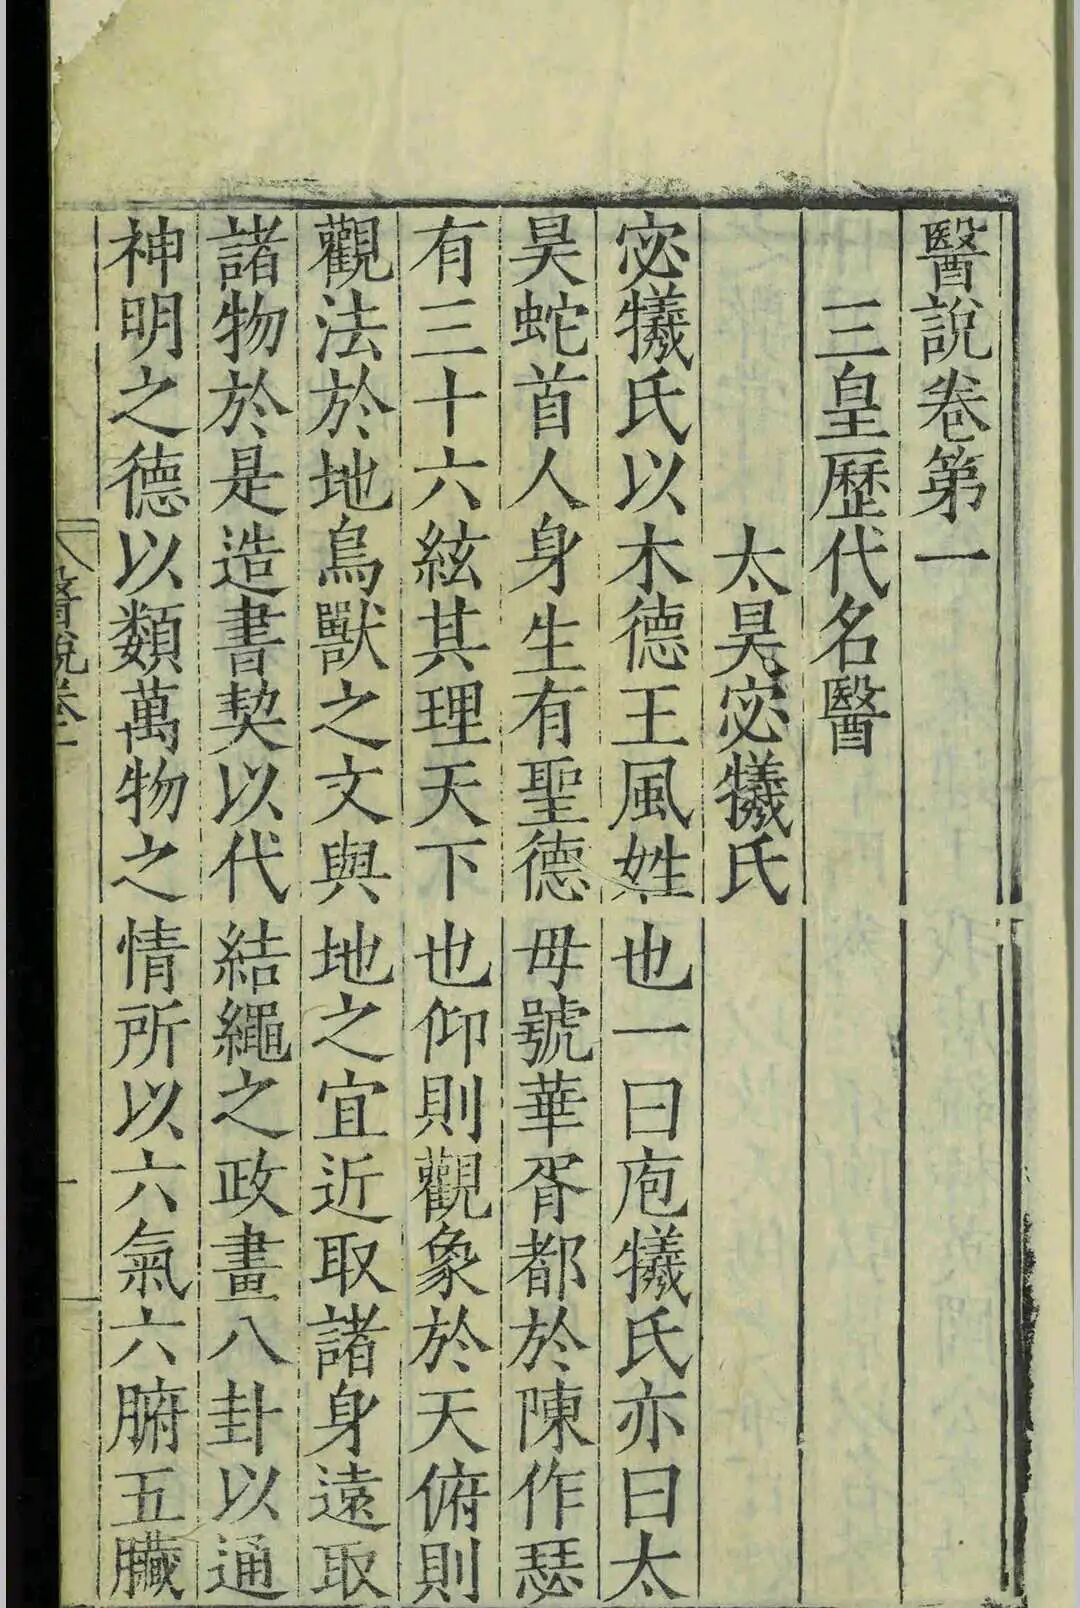 醫說卷第一
三皇歷代名醫
太昊宓犧氏
宓犧氏以木德王風姓也一曰庖犧氏亦曰太
昊蛇首人身生有聖德母號華胥都於陳作瑟
有三十六絃其理天下也仰則觀象於天俯則
觀法於地鳥獸之文與地之宜近取諸身遠取
諸物於是造書契以代結繩之政畫八卦以通
神明之德以類萬物之情所以六氣六腑五臟
醫說卷一